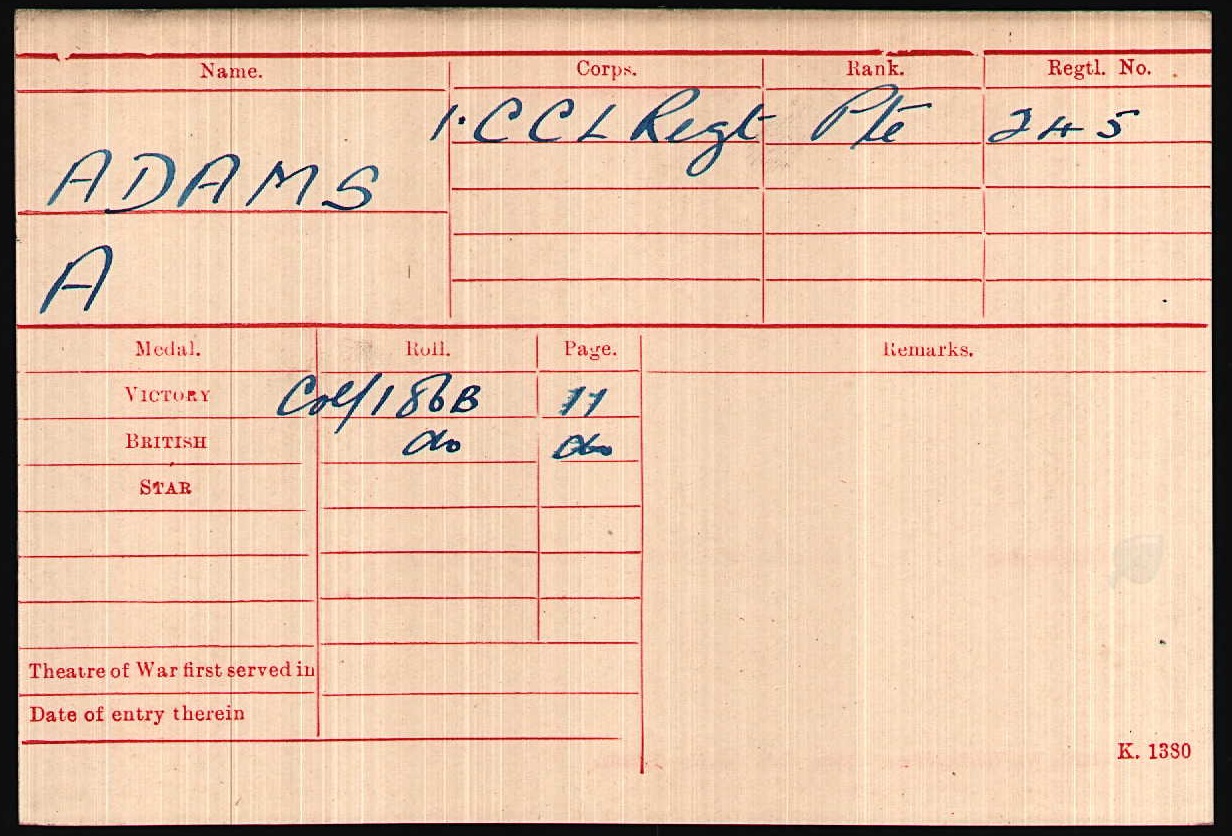 Name. Corps. Rank. Regtl. No.
1. C C L Regt Pte 245
ADAMS
A
Medal. Roll. Page. Remarks.
VICTORY Col/186B 11
BRITISH do do
STAR
Theatre of War first served in
Date of entry therein
K. 1380